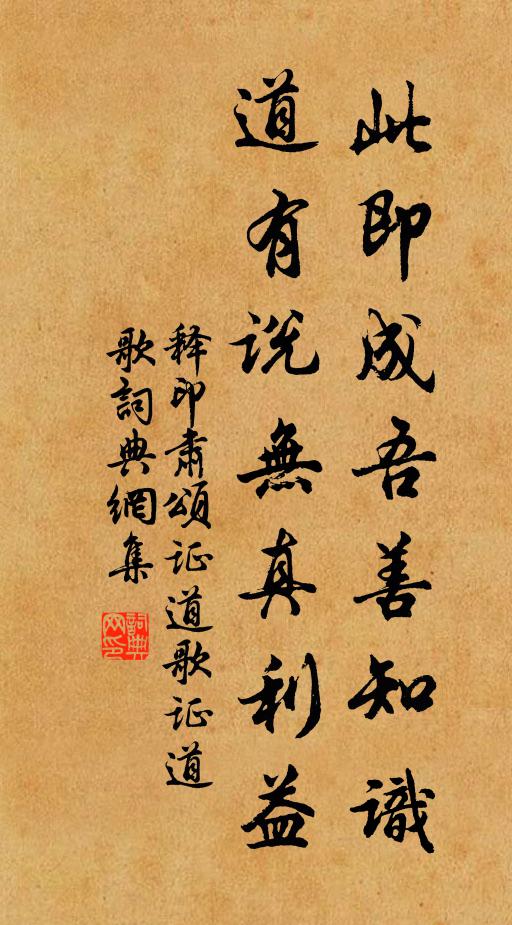 此即成吾善知識
道有说無真利益
释印肃頌证道歌证道
歌詞典網集
詞典网印